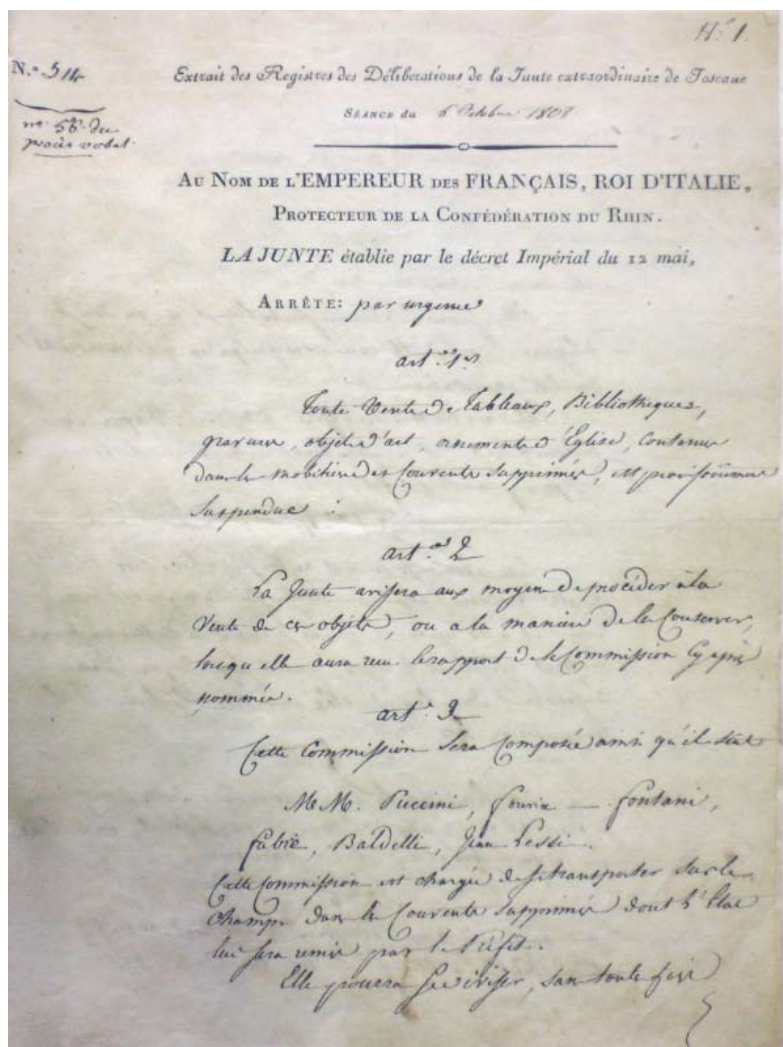 N.º 1.
N.º 514
Extrait des Registres des Délibérations de la Junte extraordinaire de Toscane
SÉANCE du 6 Octobre 1808
nº 58 du
procès verbal.
AU NOM DE L'EMPEREUR DES FRANÇAIS, ROI D'ITALIE,
PROTECTEUR DE LA CONFÉDÉRATION DU RHIN.
LA JUNTE établie par le décret Impérial du 12 mai,
ARRÊTE: par urgence
art. 1er
Toute Vente de Tableaux, Bibliotheques,
gravures, objets d'art, ornements d'Église, contenus
dans le mobilier des Couvents Supprimés, est
Suspendue :
art. 2
La Junte avisera aux moyens de procéder à la
Vente de ces objets, ou a la manière de les Conserver,
lorsqu'elle aura reçu le rapport de la Commission Cy après
nommée.
art. 3
Cette Commission Sera Composée ainsi qu'il suit
M M. Puccini, fontani,
fabre, Baldelli, Jean Lessi.
Cette Commission est chargée de se transporter sur le
Champ dans les Couvents Supprimés dont l'État
lui sera remis par le Préfet.
Elle pourra se diviser, sans toute fois